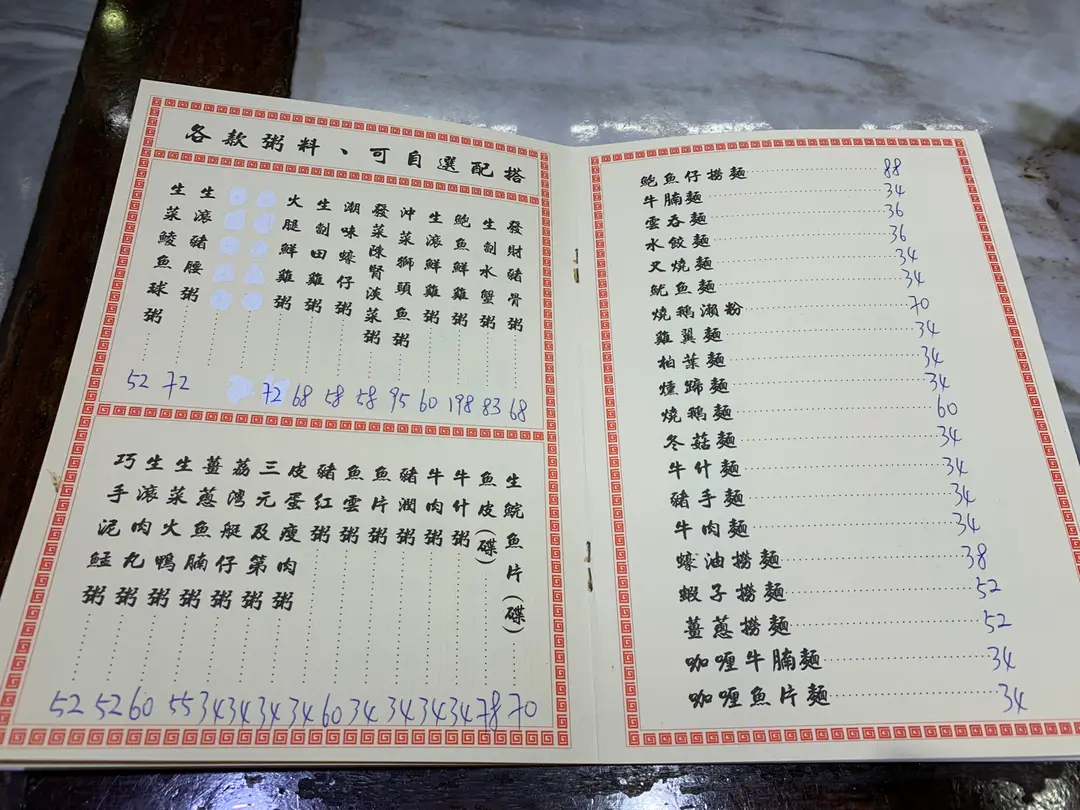 各款粥料、可自選配搭
發財豬骨粥 68
生劏水蟹粥 83
鮑魚鮮雞粥 198
生滾鮮雞粥 60
沖菜獅頭魚粥 95
發菜陳腎淡菜粥 58
潮味蠔仔粥 58
生劏田雞粥 68
火腿鮮雞粥 72
生滾豬腰粥 72
生菜鯪魚球粥 52
生鯇魚片(碟) 70
魚皮(碟) 78
牛什粥 34
牛肉粥 34
豬潤粥 34
魚片粥 34
魚雲粥 60
豬紅粥 34
皮蛋瘦肉粥 34
三元及第粥 34
荔灣艇仔粥 34
薑蔥魚腩粥 55
生菜火鴨粥 60
生滾肉丸粥 52
巧手泥鯭粥 52
鮑魚仔撈麵 88
牛腩麵 34
雲吞麵 36
水餃麵 36
叉燒麵 34
魷魚麵 34
燒鵝瀨粉 70
雞翼麵 34
柏葉麵 34
燻蹄麵 34
燒鵝麵 60
冬菇麵 34
牛什麵 34
豬手麵 34
牛肉麵 34
蠔油撈麵 38
蝦子撈麵 52
薑蔥撈麵 52
咖喱牛腩麵 34
咖喱魚片麵 34